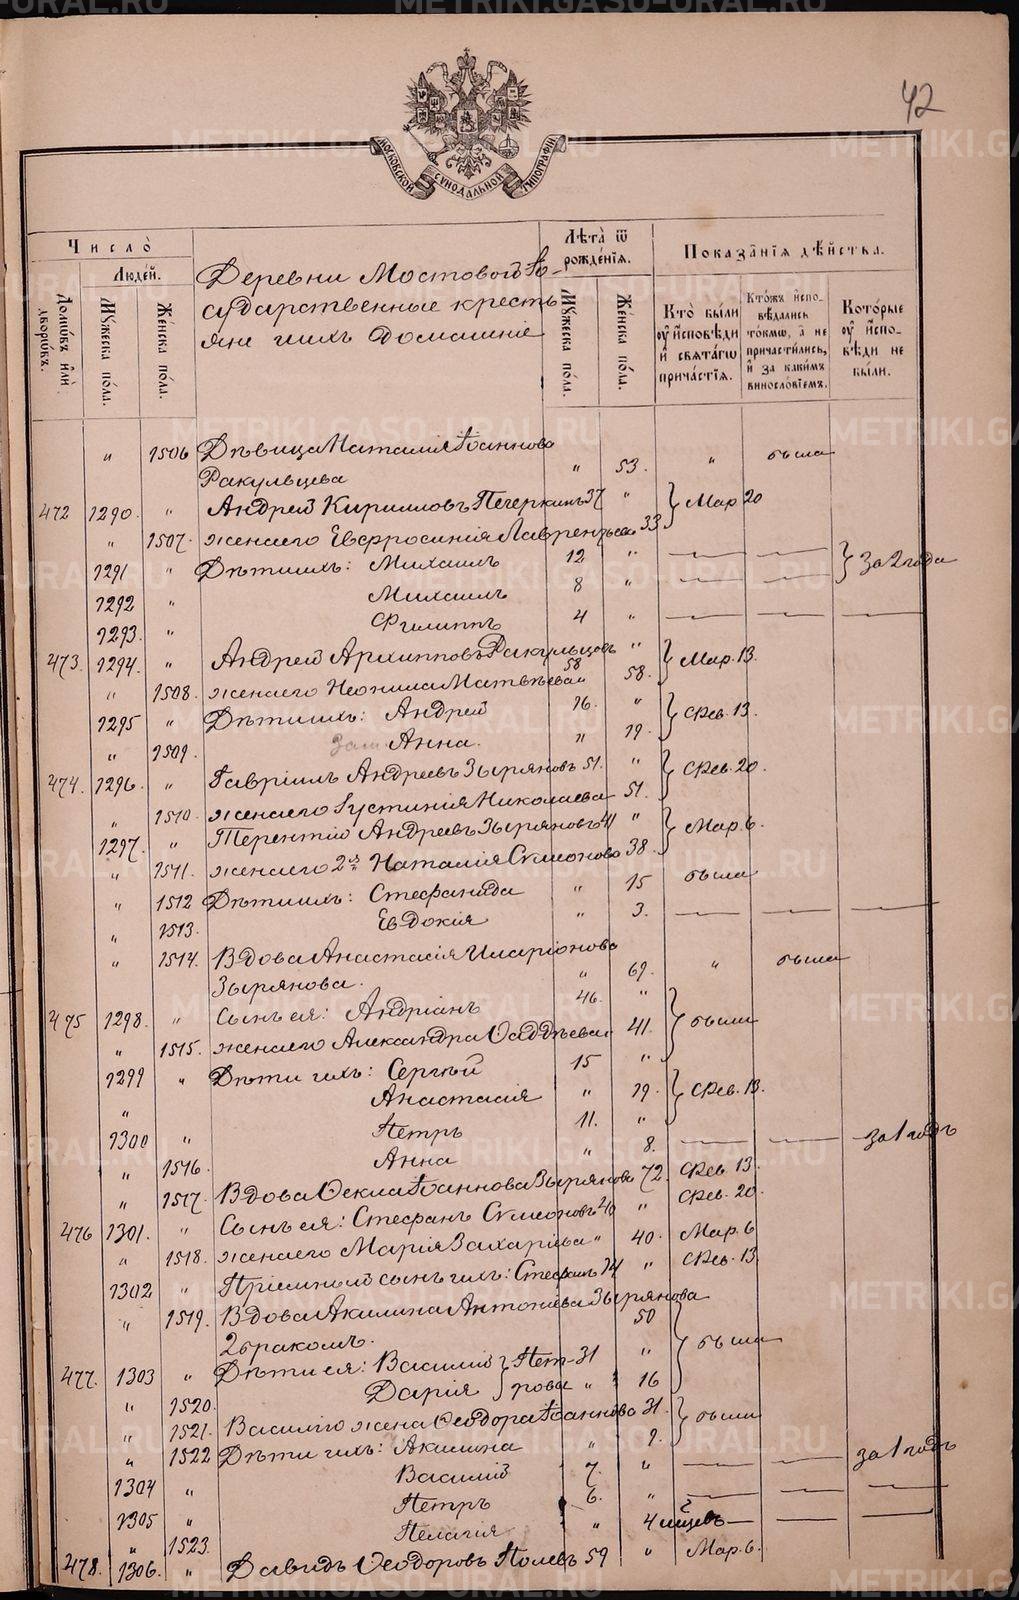 METRIKI.GASO-URAL.RU
42
МОСКОВСКОЙ СѴНОДАЛЬНОЙ ТИПОГРАФІИ
Число̀
Люде́й.
Домѡ́въ и҆лѝ дворѡ́въ.
Мꙋ́жеска по́ла.
Же́нска по́ла.
Деревни Мостовой Го-
сударственные кресть
яне ихъ домашніе
Лѣ́та ѿ рожде́нїѧ.
Мꙋ́жеска по́ла.
Же́нска по́ла.
Показа̑нїѧ дѣ́йства.
Кто̀ бы́ли ᲂу҆ и҆сповѣ́ди и҆ свѧта́гѡ прича́стїѧ.
Кто́жъ и҆спо-вѣ́дались то́кмѡ, а҆ не причасти́лись, и҆ за каки́мъ винослові́емъ.
Кото́рые ᲂу҆ и҆спо-вѣ́ди не бы́ли.
" 1506 Дѣвица Наталія Іоаннова
Ракульцева " 53. " была
472 1290. " Андрей Кирилловъ Печеркинъ 37 " Мар. 20
" 1507. жена его Евфросинія Лаврентьева 33
1291 " Дѣти ихъ: Михаилъ 12 " — — За 2 года
1292 " Михаилъ 8 " — —
1293. " Филиппъ 4 " — — —
473. 1294. " Андрей Архипповъ Ракульцевъ 58 " Мар. 13.
" 1508. жена его Неонила Матвѣева " 58.
1295 " Дѣти ихъ: Андрей 16. " Фев. 13.
" 1509. Анна. " 19.
474. 1296. " Гавріилъ Андреевъ Зыряновъ 51. " Фев. 20.
" 1510. жена его Іустинія Николаева 51.
1297. " Терентій Андреевъ Зыряновъ 41 " Мар. 6.
" 1511. жена его 2я Наталія Сѵмеонова 38.
" 1512 Дѣти ихъ: Стефанида " 15 были
" 1513. Евдокія " 3. — — —
" 1514. Вдова Анастасія Иларіонова
Зырянова. " 69. " была
475 1298. " Сынъ ея: Андріанъ 46. " были
" 1515. жена его Александра Ѳаддѣева " 41.
1299 " Дѣти ихъ: Сергѣй 15 " Фев. 13.
" Анастасія " 19.
1300 " Петръ 11. "
" 1516. Анна " 8. — — за 1 годъ
" 1517. Вдова Ѳекла Іоаннова Зырянова 72. Фев. 13.
476 1301. " Сынъ ея: Стефанъ Сѵмеоновъ 40 " Фев. 20.
" 1518. жена его Марія Захаріева " 40. Мар. 6
1302 " Пріемный сынъ ихъ: Стефанъ 14 " Фев. 13.
" 1519. Вдова Акилина Антоніева Зырянова
2 бракомъ. 50 были
477. 1303 " Дѣти ея: Василій Пет- 31 "
" 1520. Дарія ровы " 16
" 1521. Василія жена Ѳеодора Іоаннова 31. были
" 1522 Дѣти ихъ: Акилина " 9. — — за 1 годъ
1304 " Василій 7. " — — —
1305 " Петръ 6. "
" 1523. Пелагія " 4 — —
478. 1306. " Давидъ Ѳеодоровъ Полевъ 59 " Мар. 6.